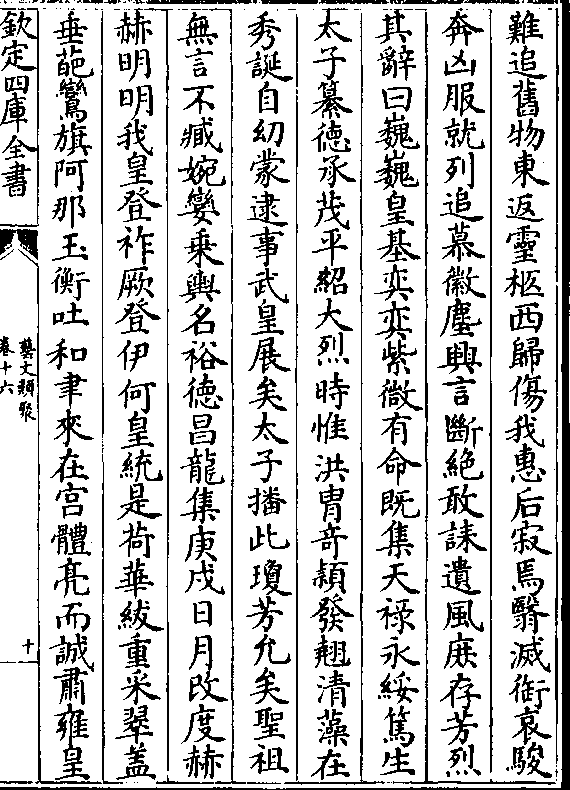 難追舊物東返靈柩西歸傷我惠后寂焉翳滅銜哀駿
奔凶服就列追慕徽塵興言斷絶敢誄遺風庶存芳烈
其辭曰巍巍皇基奕奕紫微有命既集天禄永綏篤生
太子纂德承茂平紹大烈時惟洪胄奇頴發翹清藻在
秀誕自幼蒙逮事武皇展矣太子播此瓊芳允矣聖祖
無言不臧婉孌乘輿名裕德昌龍集庚戌日月改度赫
赫明明我皇登祚厥登伊何皇統是荷華紱重采翠盖
垂葩鸞旗阿那玉衡吐和聿來在宮體亮而誠肅雍皇
欽定四庫全書
藝文類聚
卷十六
十